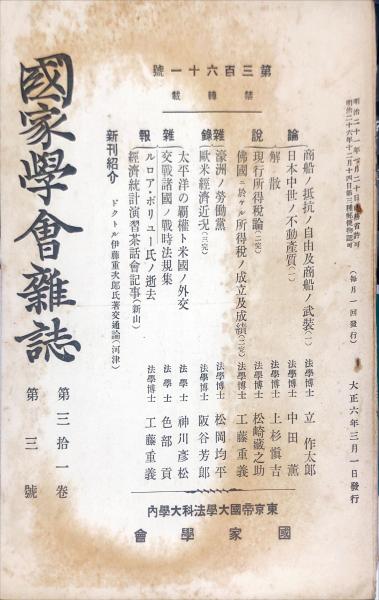 明治二十六年十二月十四日第三種郵便物認可
(每月一回發行)
大正六年三月一日發行
第三百六十一號
禁轉載
論說
商船ノ抵抗ノ自由及商船ノ武裝(二) 法學博士 立作太郎
日本中世ノ不動產質(一) 法學博士 中田薰
解散 法學博士 上杉愼吉
現行所得稅論(二完) 法學博士 松崎藏之助
佛國ニ於ケル所得稅ノ成立及成績(三完) 法學博士 工藤重義
雜錄
濠洲ノ勞働黨 法學博士 松岡均平
歐米經濟近況(三完) 法學博士 阪谷芳郎
雜報
太平洋の覇權ト米國ノ外交 法學士 神川彥松
交戰諸國ノ戰時法規集 法學士 色部貢
ルロア・ボリュー氏ノ逝去 法學博士 工藤重義
經濟統計演習茶話會記事(新山)
新刊紹介
ドクトル伊藤重次郎氏著交通論(河津)
國家學會雜誌
第三拾一卷 第三號
東京帝國大學法科大學內
國家學會